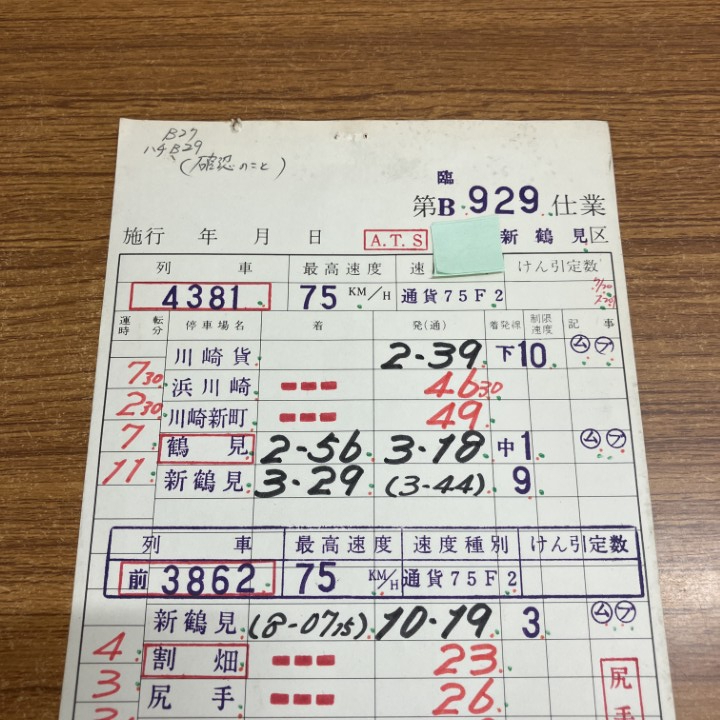 B27
ハチB29
(確認のこと)
臨
第B 929 仕業
施行 年 月 日 A.T.S 新鶴見区
列車 最高速度 速 けん引定数
4381 75 KM/H 通貨75F2
運転時分 停車場名 着 発(通) 着発線 制限速度 記事
川崎貨 2-39 下 10 ㋰㋫
7 30 浜川崎 46 30
2 30 川崎新町 49
7 鶴見 2-56 3-18 中1 ㋰㋫
11 新鶴見 3-29 (3-44) 9
列車 最高速度 速度種別 けん引定数
前 3862 75 KM/H 通貨75F2
新鶴見 (8-07 15) 10-19 3 ㋰㋫
4 割畑 23
3 尻手 26
尻手